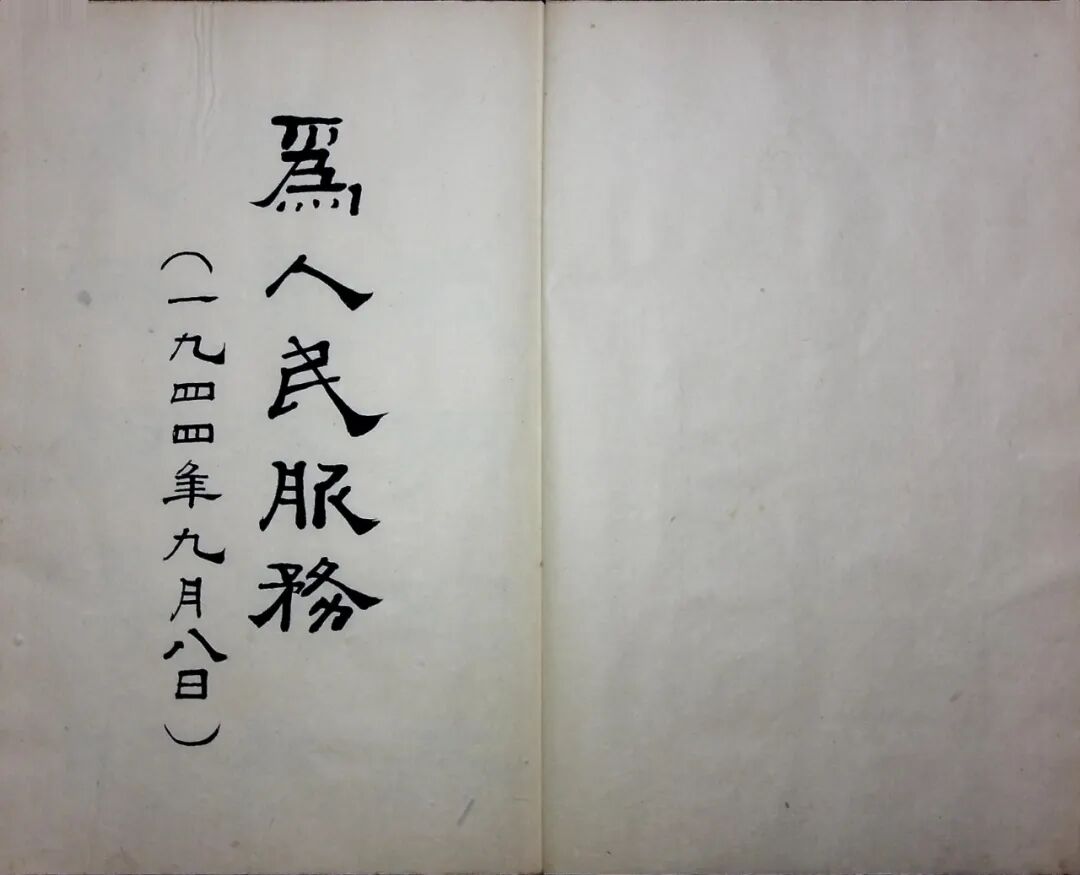 爲人民服務
（一九四四年九月八日）